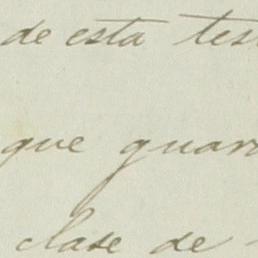 de esta tes
que guar
clase de